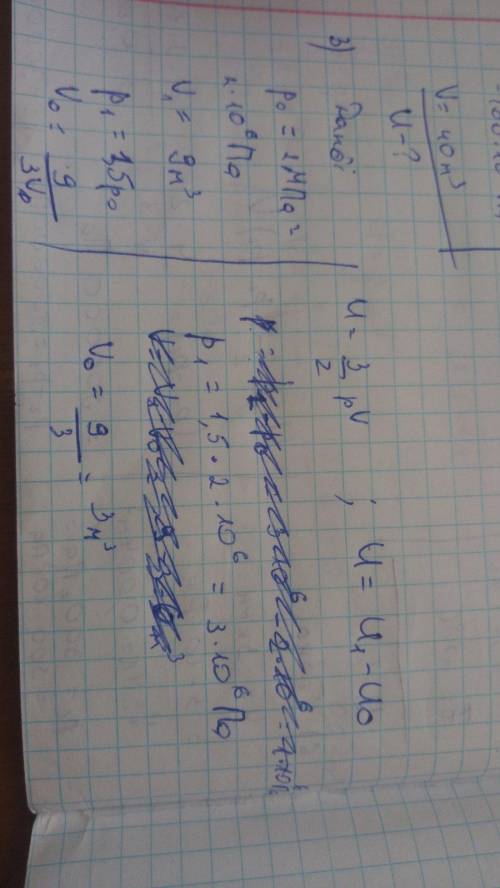 V = 40 м³
U - ?
3) Дано:
p₀ = 2 МПа =
2·10⁶ Па
V₁ = 9 м³
p₁ = 1,5p₀
V₀ = 9/3V₀
U = 3/2 pV ; U = U₁ - U₀
p₁ = 1,5 · 2 · 10⁶ = 3 · 10⁶ Па
V₀ = 9/3 = 3 м³